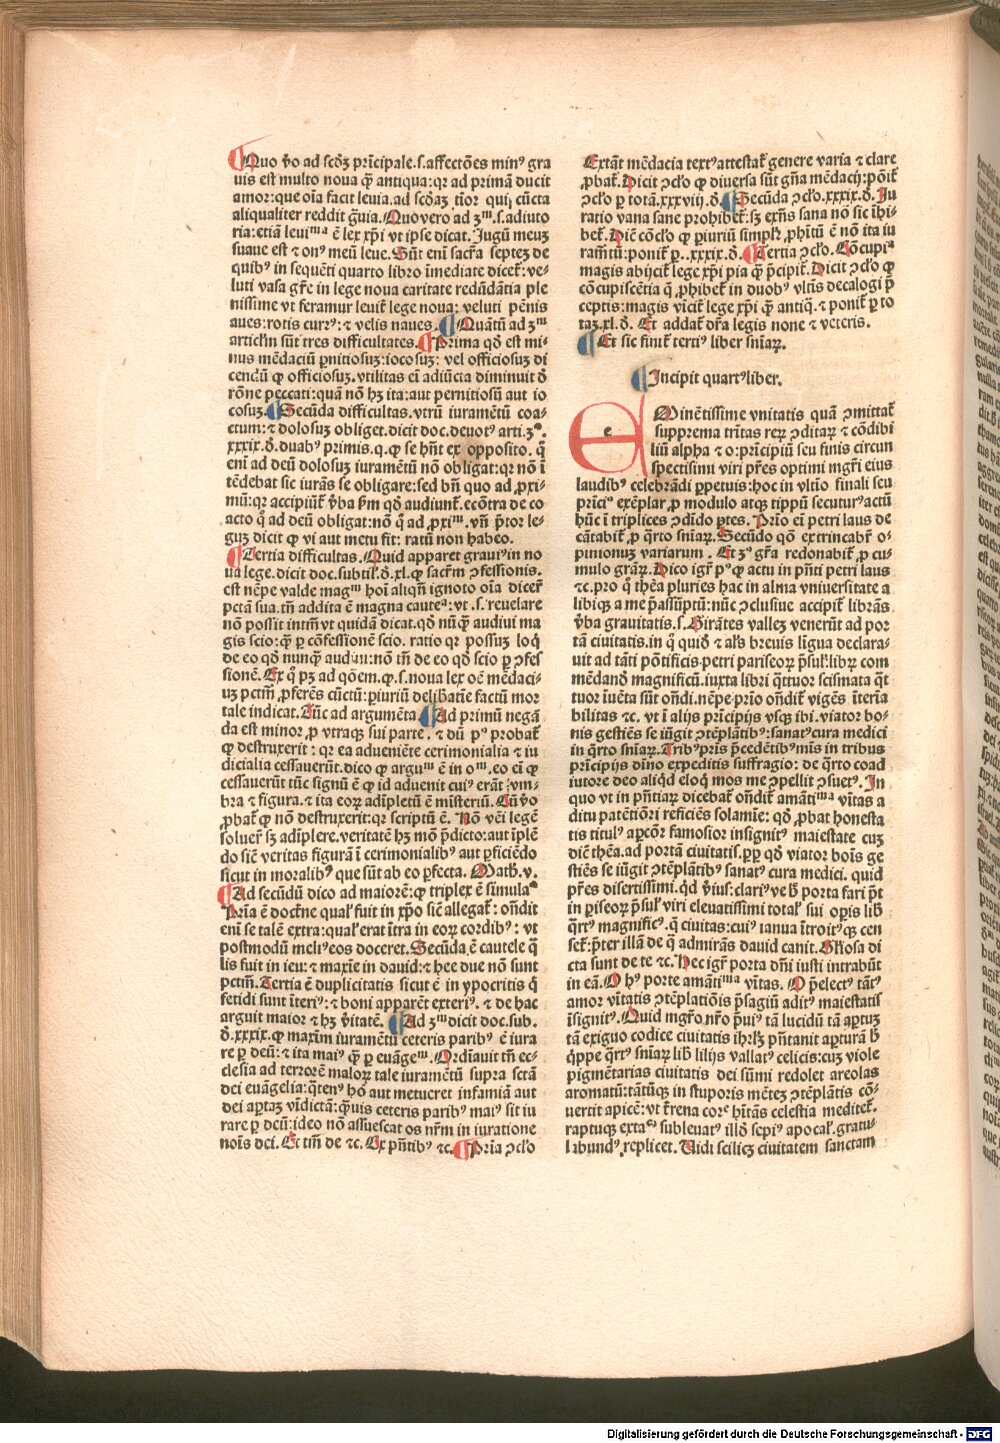 Quo v̄o ad scd̄ꝫ prīcipale.s.affectōes minꝰ gra
uis est multo noua qꝫ antiqua:qꝛ ad primā ducit
amor:que oīa facit leuia.ad scd̄aꝫ tīor quij cūcta
aliqualiter reddit gͣuia.Quovero ad ʒᵐ.s.adiuto
ria:etiā leuiᵐᵃ ē lex xp̄i vt ipse dicat.Jugū meuꝫ
suaue est ⁊ onꝰ meū leue.Sūt enī sacrͣa septeꝫ de
quibꝰ in sequēti quarto libro īmediate dicet̄:ve⸗
luti vasa gr̄e in lege noua caritate redūdātia ple
nissime vt feramur leuit̄ lege noua: veluti pēnis
aues:rotis curꝰ:⁊ velis naues.Quātū ad ʒᵐ
articlm̄ sūt tres difficultates.Prima qd̄ est mi⸗
nus mēdaciū ꝑnitiosuꝫ:iocosuꝫ: vel officiosuꝫ di
cendū ꝙ officiosuꝫ.vtilitas ei adiūcta diminuit d̄
rōne peccati:quā nō hꝫ ita:aut pernitiosū aut io
cosuꝫ.Secūda difficultas.vtrū iuramētū coa⸗
ctum:⁊ dolosuꝫ obliget.dicit doc.deuotꝰ arti.ʒᵒ.
xxxix.d̄.duabꝰ primis.q.ꝙ se hn̄t ex opposito. q̄
enī ad deū dolosuꝫ iuramētū nō obligat:qꝛ nō ī
tēdebat sic iurās se obligare:sed bn̄ quo ad ꝓxi⸗
mū:qꝛ accipiūt̄ v̄ba ſm̄ qd̄ audiunt̄.ecōtra de co
acto qͥ ad deū obligat:nō qͥ ad ꝓxiᵐ.vn̄ p̄tor le⸗
guꝫ dicit ꝙ vi aut metu fit: ratū non habeo.
Tertia difficultas.Quid apparet grauiꝰin no
ua lege.dicit doc.subtil̄.d̄.xl.ꝙ sacrm̄ ↄfessionis.
est nēpe valde magᵐ hoī aliqn̄ ignoto oīa dicer̄
pctā sua.tn̄ addita ē magna cauteᵃ:vt .s.reuelare
nō possit intm̄ vt quidā dicat.qd̄ nūqͣꝫ audiui ma
gis scio:qꝫ ꝑ cōfessionē scio. ratio qꝛ possuꝫ loqͥ
de eo qd̄ nunqͣꝫ audiui:nō tn̄ de eo qd̄ scio ꝑ ↄfes
sionē.Ex qͥ pꝫ ad qōem.ꝙ.s.noua lex oē mēdaci⸗
uꝫ pctm̄ ,ꝓferēs cūctū:ꝑiuriū delibatīe factū mor
tale indicat.Tūc ad argumēta.Ad primū negā
da est minor ꝓ vtraqꝫ sui parte. ⁊ dū pᵒ probat̄
ꝙ destruxerit : qꝛ ea adueniēte cerimonialia ⁊ iu
dicialia cessauerūt.dico ꝙ arguᵐ ē in oᵐ.eo ei ꝙ
cessauerūt tūc signū ē ꝙ id aduenit cuiꝰ erāt vm⸗
bra ⁊ figura.⁊ ita eoꝝ adīpletū ē mīsteriū.Cū v̄o
ꝓbat̄ ꝙ nō destruxerit:qꝛ scriptū ē. Nō veī legē
soluer̄ sꝫ adīplere.veritatē hꝫ mō p̄dicto:aut īplē
do siē veritas figurā ī cerimonialibꝰ aut ꝑficiēdo
sicut in moralibꝰ que sūt ab eo ꝑfecta. Math̄.v.
Ad secūdū dico ad maiorē:ꝙ triplex ē simulaᵒ
Pr̄ia ē doctr̄ne qual̄ fuit in xp̄o siē allegat̄: on̄dit
enī se talē extra:qual̄ erat ītra in eoꝝ cordibꝰ : vt
postmodū meliꝰeos doceret.Secūda ē cautele q̄
lis fuit in ieu:⁊ maxīe in dauid:⁊ hee due nō sunt
pctm̄.Tertia ē duplicitatis sicut ē in ypocritis q̄
fetidi sunt īteriꝰ:⁊ boni apparēt exteriꝰ. ⁊ de hac
arguit maior ⁊ hꝫ v̄itatē. Ad ʒᵐ dicit doc.sub.
d̄.xxxix.ꝙ maxīm iuramētū ceteris paribꝰ ē iura
re ꝑ deū:⁊ ita maiꝰ qꝫ ꝑ euāgeᵐ.Ordīauit tn̄ ec⸗
clesia ad terrorē maloꝝ tale iuramētū supra sctā
dei euāgelia:q̄tenꝰ hō aut metueret infamiā aut
dei aptaꝫ vīdictā:qͣuis ceteris paribꝰ maiꝰ sit iu
rare ꝑ deū:ideo nō assuescat os nr̄m in iuratione
noīs dei.Et tm̄ de ⁊c.Ex pn̄tibꝰ ⁊c.Pr̄ia ↄclo
Extāt mēdacia textꝰattestat̄ genere varia ⁊ clare
ꝓbat̄.Dicit ↄclo ꝙ diuersa sūt gn̄a mēdacij:pōit̄
ↄclo ꝑ totā.xxxviij.d̄.Secūda ↄclo.xxxix.d̄.Ju
ratio vana sane prohibet̄:sꝫ exn̄s sana nō sic īhi⸗
bet̄.Diē cōclo ꝙ ꝑiuriū simplr̄ ,ꝓhītū ē nō ita iu
ram̄tū:ponit̄ ꝑ..xxxix.d̄.Tertia ↄclo.Cōcupiᵃ
magis abijcit̄ lege xp̄i pia qꝫ p̄cipit̄.Dicit ↄclo ꝙ
cōcupiscētia q̄ ,ꝓhibet̄ in duobꝰ vltīs decalogi p̄
ceptis:magis vicit̄ lege xp̄i qꝫ antiq̄.⁊ ponit̄ ꝑ to
taꝫ.xl.d̄. Et addat̄ dr̄a legis none ⁊ veteris.
Et sic finit̄ tertiꝰ liber sn̄iaꝝ.
Incipit quartꝰliber.
Eminētissime vnitatis quā ↄmittat̄
supprema trītas reꝝ ↄditaꝝ ⁊ cōdibi
liū alpha ⁊ o:prīcipiū seu finis circun
spectissimi viri pr̄es optimi mgr̄i eius
laudibꝰ celebrādi ꝑpetuis:hoc in vltīo finali seu
prīciᵒ exēplar,ꝓ modulo atqꝫ tippū secuturꝰactū
hūc ī triplices ↄdīdo ꝑtes. Prīo eī petri laus de
cātabit̄ ꝓ qͣrto sn̄iaꝝ.Secūdo qō extrincabr̄ o⸗
pinionuꝫ variarum . Et ʒᵒ gr̄a redonabit̄ ꝓ cu⸗
mulo grāꝝ.Dico igr̄ pᵒ ꝙ actu in pn̄ti petri laus
⁊c.pro qͥ thēa pluries hac in alma vniuersitate a
libiqꝫ a me p̄assūptū:nūc ↄclusiue accipit̄ librās
v̄ba grauitatis.s.Girātes valleꝫ venerūt ad por
tā ciuitatis.in qͥ quid̄ ⁊ al̄s breuis līgua declara⸗
uit ad tāti pōtificis petri pariseoꝝ p̄sul̄:libꝝ com
mēdand magnificū.iuxta libri qͣttuor scismata qͣt
tuor īuēta sūt on̄di.nēpe prīo on̄dit̄ vigēs īterīa
bilitas ⁊c. vt ī alijs prīcipijs vsqꝫ ibi.viator bo⸗
nis gestiēs se iūgit ↄtēplātibꝰ:sanatꝰcura medici
in qͣrto sn̄iaꝝ.Tribꝰprīs p̄cedētibꝰmīs in tribus
prīcipijs dn̄o expeditis suffragio: de qͣrto coad
iutore deo aliqd̄ eloqͥ mos me ↄpellit ↄsuetꝰ.In
quo vt in pn̄tiaꝝ dicebat̄ on̄dit̄ amātiᵐᵃ vītas a
ditu patētiōri reficiēs solamīe: qd̄ ꝓbat honesta
tis titulꝰ apcōr famosior insignitꝰ maiestate cuꝫ
diē thēa.ad portā ciuitatis.ꝑꝑ qd̄ viator boīs ge
stiēs se iūgit ↄtēplātibꝰ sanatꝰ cura medici. quid
pr̄es disertissimi.qͥd v̄iꝰ:clariꝰve lꝫ porta fari p̄t
in ꝑiseoꝝ p̄sul̄ viri eleuatissimi total̄ sui oꝑis lib̄
qͣrtꝰ magnificꝰ.q̄ ciuitas:cuiꝰ ianua ītroitꝰqꝫ cen
sct̄:p̄ter illā de q̄ admirās dauid canit.Gl̄osa di
cta sunt de te ⁊c.Hec igr̄ porta dn̄i iusti intrabūt
in eā.O hꝰ porte amātiᵐᵃ vītas. O p̄electꝰ tātꝰ
amor vītatis ↄtēplatiōis p̄sagiū aditꝰ maiestatis
īsignitꝰ.Quid mgr̄o.nr̄o p̄uiꝰ tā lucidū tā aptuꝫ
tā exiguo codice ciuitatis ihrl̄ꝫ pn̄tanit apturā lꝫ
qͥppe qͣrtꝰ sn̄iaꝝ lib̄ lilijs vallatꝰ celicis:cuꝫ viole
pigmētarias ciuitatis dei sūmi redolet areolas
aromatū:tātūqꝫ in stuporis mētes ↄtēplātis cō⸗
uertit apicē:vt t̄rena corᵉ hītās celestia meditet̄.
raptuqꝫ extaᵒ subleuatꝰ illd̄ sepiꝰ apocal̄.gratu⸗
labundꝰ.replicet. Vidi scilicꝫ ciuitatem sanctam
Digitalisierung gefördert durch die Deutsche Forschungsgemeinschaft - DFG